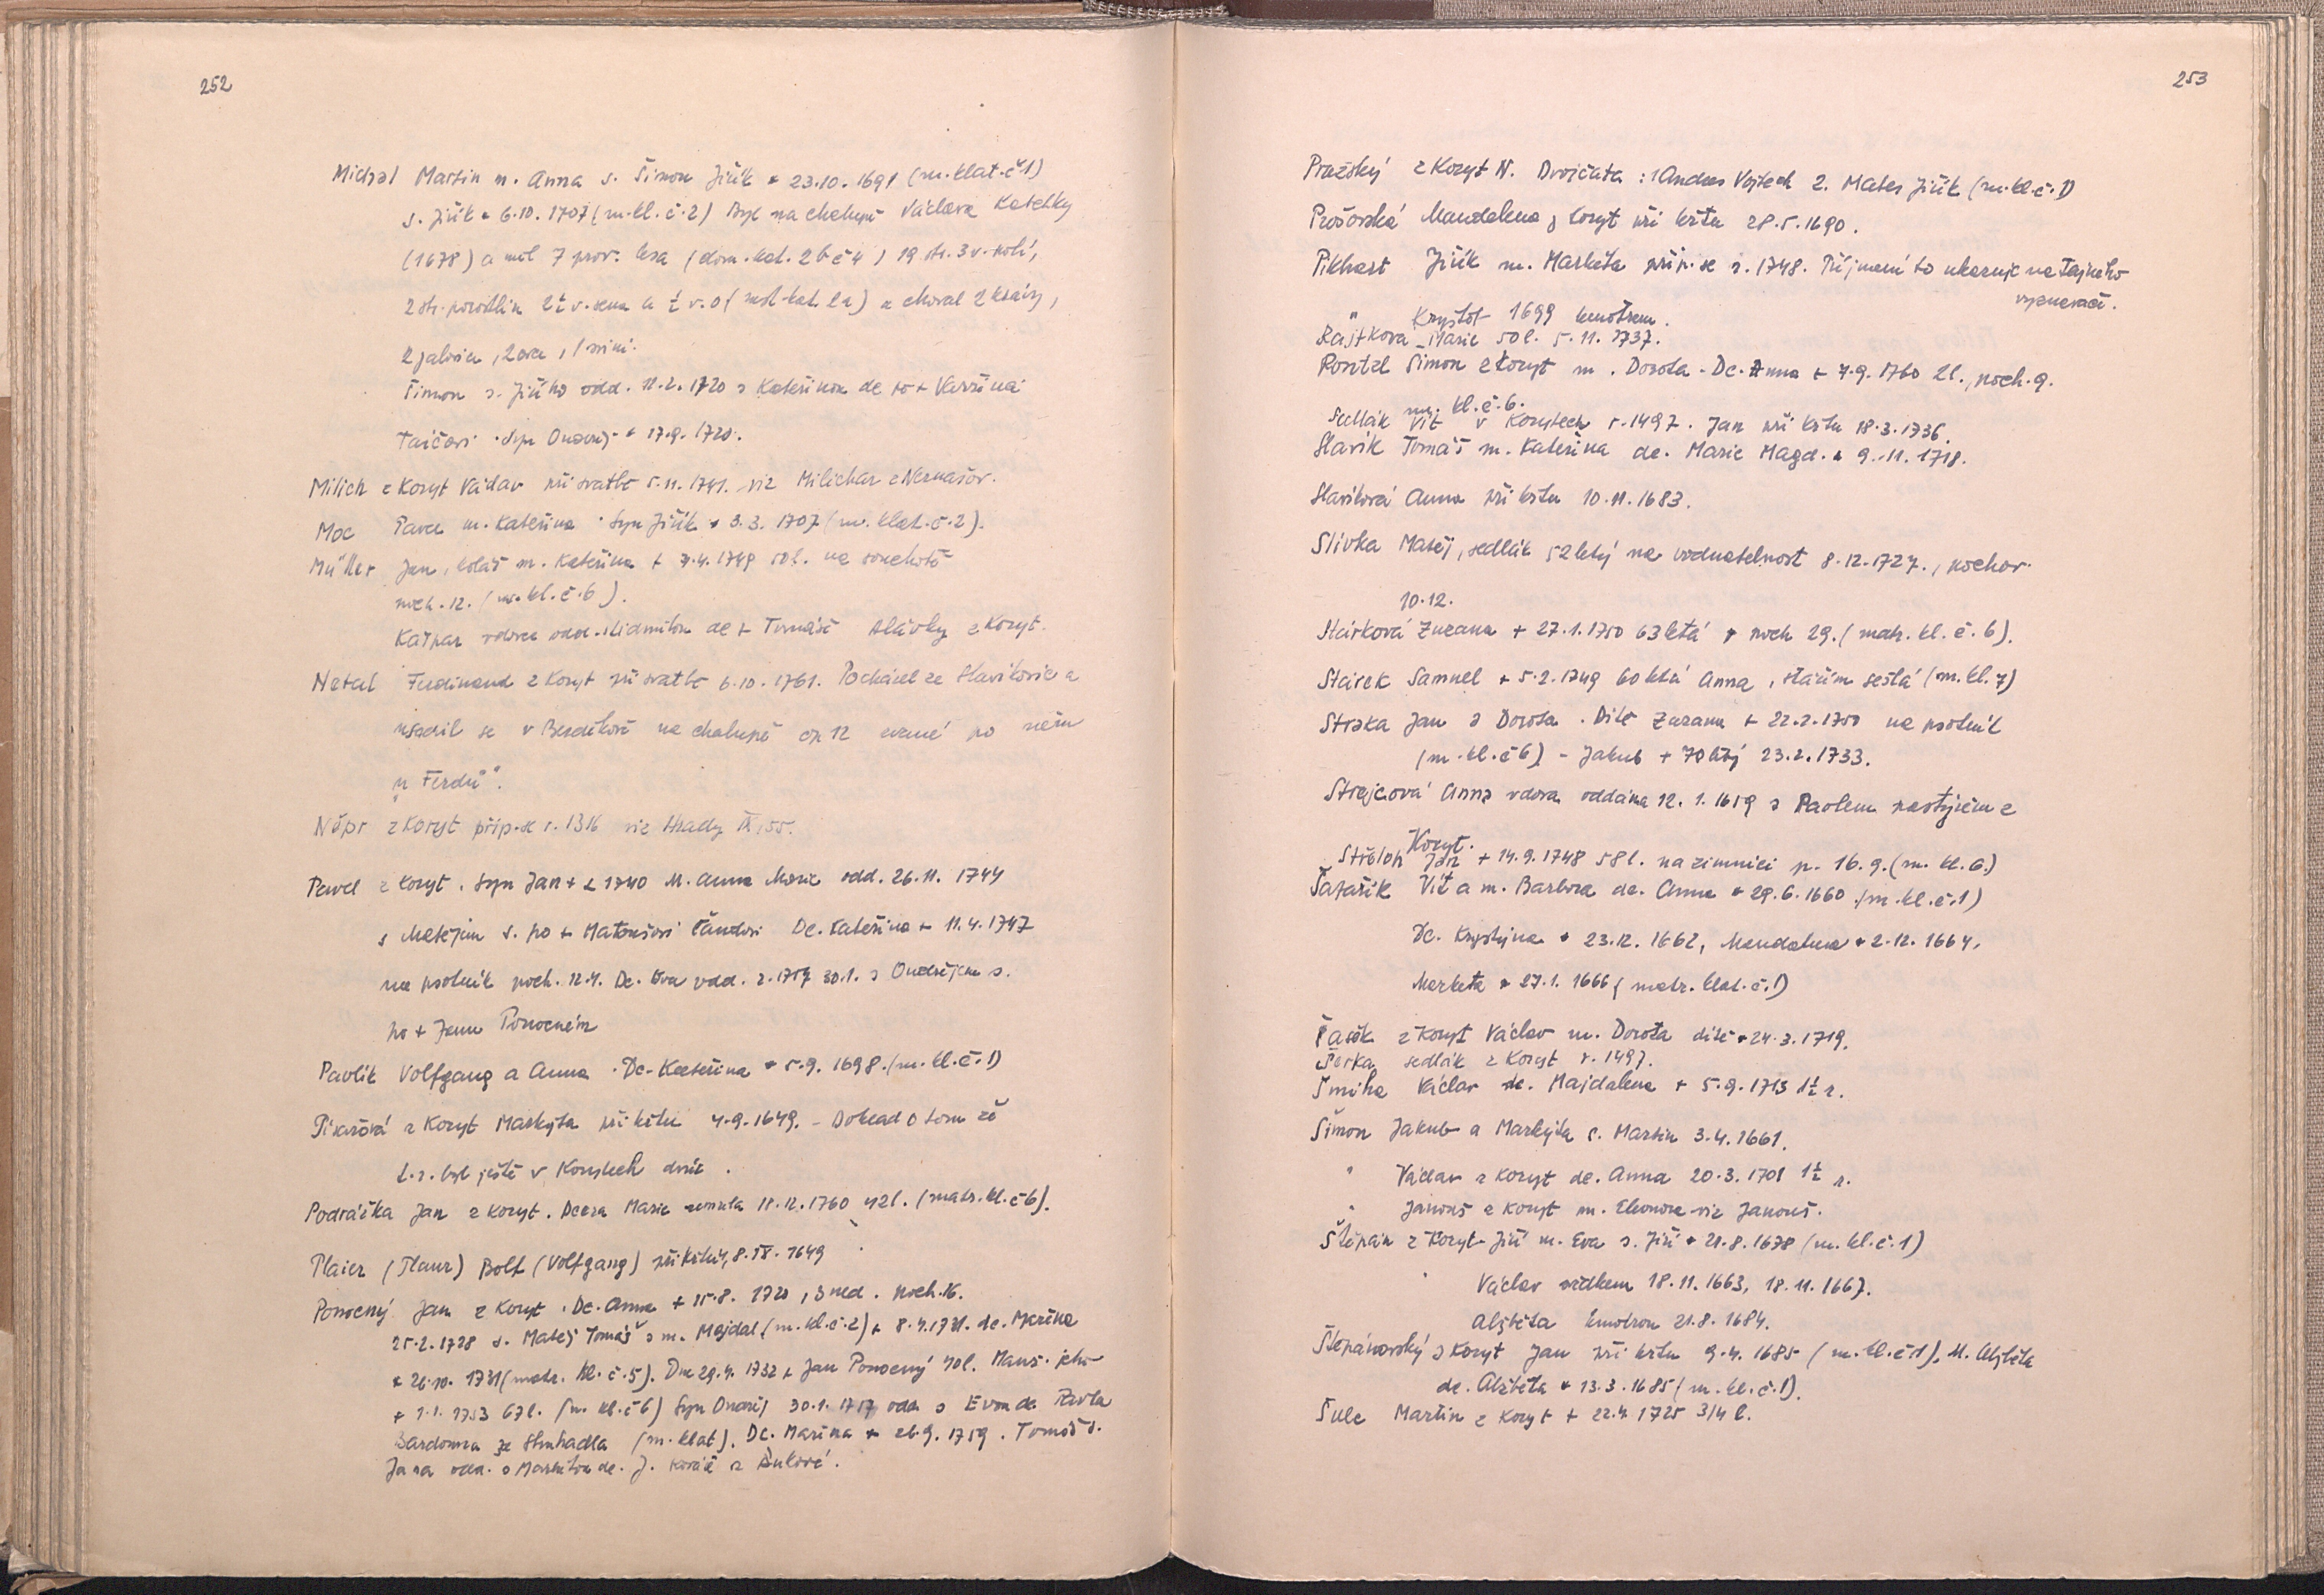 252
Michal Martin m. Anna s. Šimon Jiřík * 23.10.1691 (m. klat. č 1)
s. Jiřík * 6.10.1707 (m. kl. č. 2) Byl na chalupě Václava
(1678) a měl 7 prov. lesa (dom. kat. 2b č 4) 19 str. 3 v. polí,
2 str. 2½ v. sena a ½ v. a choval 2 krávy,
2 jalovice, 2 ovce, 1 svini.
Šimon s. Jiřího odd. 11.2.1720 s Kateřinou dc po +
syn Ondřej * 17.9.1720.
Milich z Koryt Václav při svatbě 5.11.1741. viz Milichar z Nernašov.
Moc Pavel m. Kateřina. Syn Jiřík * 3.3.1707 (m. klat. č. 2).
Müller Jan, kolář m. Kateřina + 7.4.1749 50 l. na souchotě
poch. 12. (m. kl. č. 6).
Kašpar vdovec odd. s Lidmilou dc + Tomáše Hlávky z Koryt.
Natal Ferdinand z Koryt při svatbě 6.10.1761. Pocházel ze Slavíkovic a
usadil se v Bezděkově na chalupě čp 12 zvané po něm
"u Ferdů".
Népr z Koryt přip. se r. 1316 viz Hrady IX, 55.
Pavel z Koryt. Syn Jan + 2 1740 M. Anna Marie odd. 26.11.1744
s Matějem s. po + Matoušovi Dc. Kateřina + 11.4.1747
na psotník poch. 12.4. Dc. Eva odd. r. 1757 30.1. s Ondřejem s.
po + Janu Ponocném
Pavlík Volfgang a Anna. Dc. Kateřina * 5.9.1698. (m. kl. č. 1)
Pisařová z Koryt Markyta při křtu 4.9.1649. - Doklad o tom že
t. r. byl ještě v Korytech dvůr.
Podrážka Jan z Koryt. Dcera Marie zemřela 18.12.1760 42 l. (matr. kl. č 6).
Plaier (Plaur) Bolf (Volfgang) při křtu, 8.IX.1649
Ponocný Jan z Koryt. Dc. Anna + 15.8.1720, 3 ned. poch. 16.
25.2.1728 s. Matěj Tomáš s m. Majdal. (m. kl. č. 2) + 8.4.1731. dc. Mařína
* 26.10.1731 (matr. kl. č. 5). Dne 29.4.1732 + Jan Ponocný 40 l. Manž. jeho
+ 1.1.1753 67 l. (m. kl. č 6) Syn Ondřej 30.1.1757 odd. s Evou dc. Pavla
Bardouna ze Struhadla (m. klat). Dc. Mařína * 26.9.1759. Tomáš s.
Jana odd. s Markétou dc. J. Kováře z
253
Pražský z Koryt N. Dvojčata: 1 Andres Vojtěch 2. Mates Jiřík (m. kl. č. 1)
Prošovská Mandalena z Koryt při křtu 28.5.1690.
Pikhart Jiřík m. Markéta přip. se r. 1748. Příjmení to ukazuje na tajného
vyznavače.
" Kryštof 1699 kmotrem.
Rajtkova Marie 50 l. 5.11.1737.
Roxtzl Šimon z Koryt m. Dorota. Dc. Anna + 7.9.1760 2 l., poch. 9.
m. kl. č. 6.
Sedlák Vít v Korytech r. 1497. Jan při křtu 18.3.1736.
Slavík Tomáš m. Kateřina dc. Marie Magd. * 9.11.1718.
Slavíková Anna při křtu 10.11.1683.
Slívka Matěj, sedlák 52 letý na vodnatelnost 8.12.1727., pochov.
10.12.
Stárková Zuzana + 27.1.1750 63 letá poch 29. (matr. kl. č. 6).
Stárek Samuel + 5.2.1749 60 letá Anna, stářím sešlá (m. kl. 7)
Straka Jan a Dorota. Dítě Zuzana + 22.2.1750 na psotník
(m. kl. č 6) - Jakub + 70 letý 23.2.1733.
Strejcová Anna vdova oddána 12.1.1659 s Pavlem pastýřem z
Koryt.
Střeloh Jan + 14.9.1748 58 l. na zimnici p. 16.9. (m. kl. 6.)
Šafařík Vít a m. Barbora dc. Anna * 29.6.1660. (m. kl. č. 1)
Dc. Krystyna * 23.12.1662, Mandalena * 2.12.1664.
Markéta * 27.1.1666 (matr. klat. č. 1)
Šašek z Koryt Václav m. Dorota dítě * 24.3.1719.
Šerka sedlák z Koryt r. 1497.
Šmíha Václav dc. Majdalena + 5.9.1713 1½ r.
Šimon Jakub a Markyta s. Martin 3.4.1661.
" Václav z Koryt dc. Anna 20.3.1701 1½ r.
" Janouš z Koryt m. Eleonora viz Janouš.
Štěpán z Koryt Jiří m. Eva s. Jiří * 21.8.1678 (m. kl. č. 1)
" Václav svědkem 18.11.1663, 18.11.1667.
Alžběta kmotrou 21.8.1684.
Štěpánovský z Koryt Jan při křtu 9.4.1685 (m. kl. č 1). M. Alžběta
dc. Alžběta * 13.3.1685 (m. kl. č. 1).
Šulc Martin z Koryt + 22.4.1725 3/4 l.